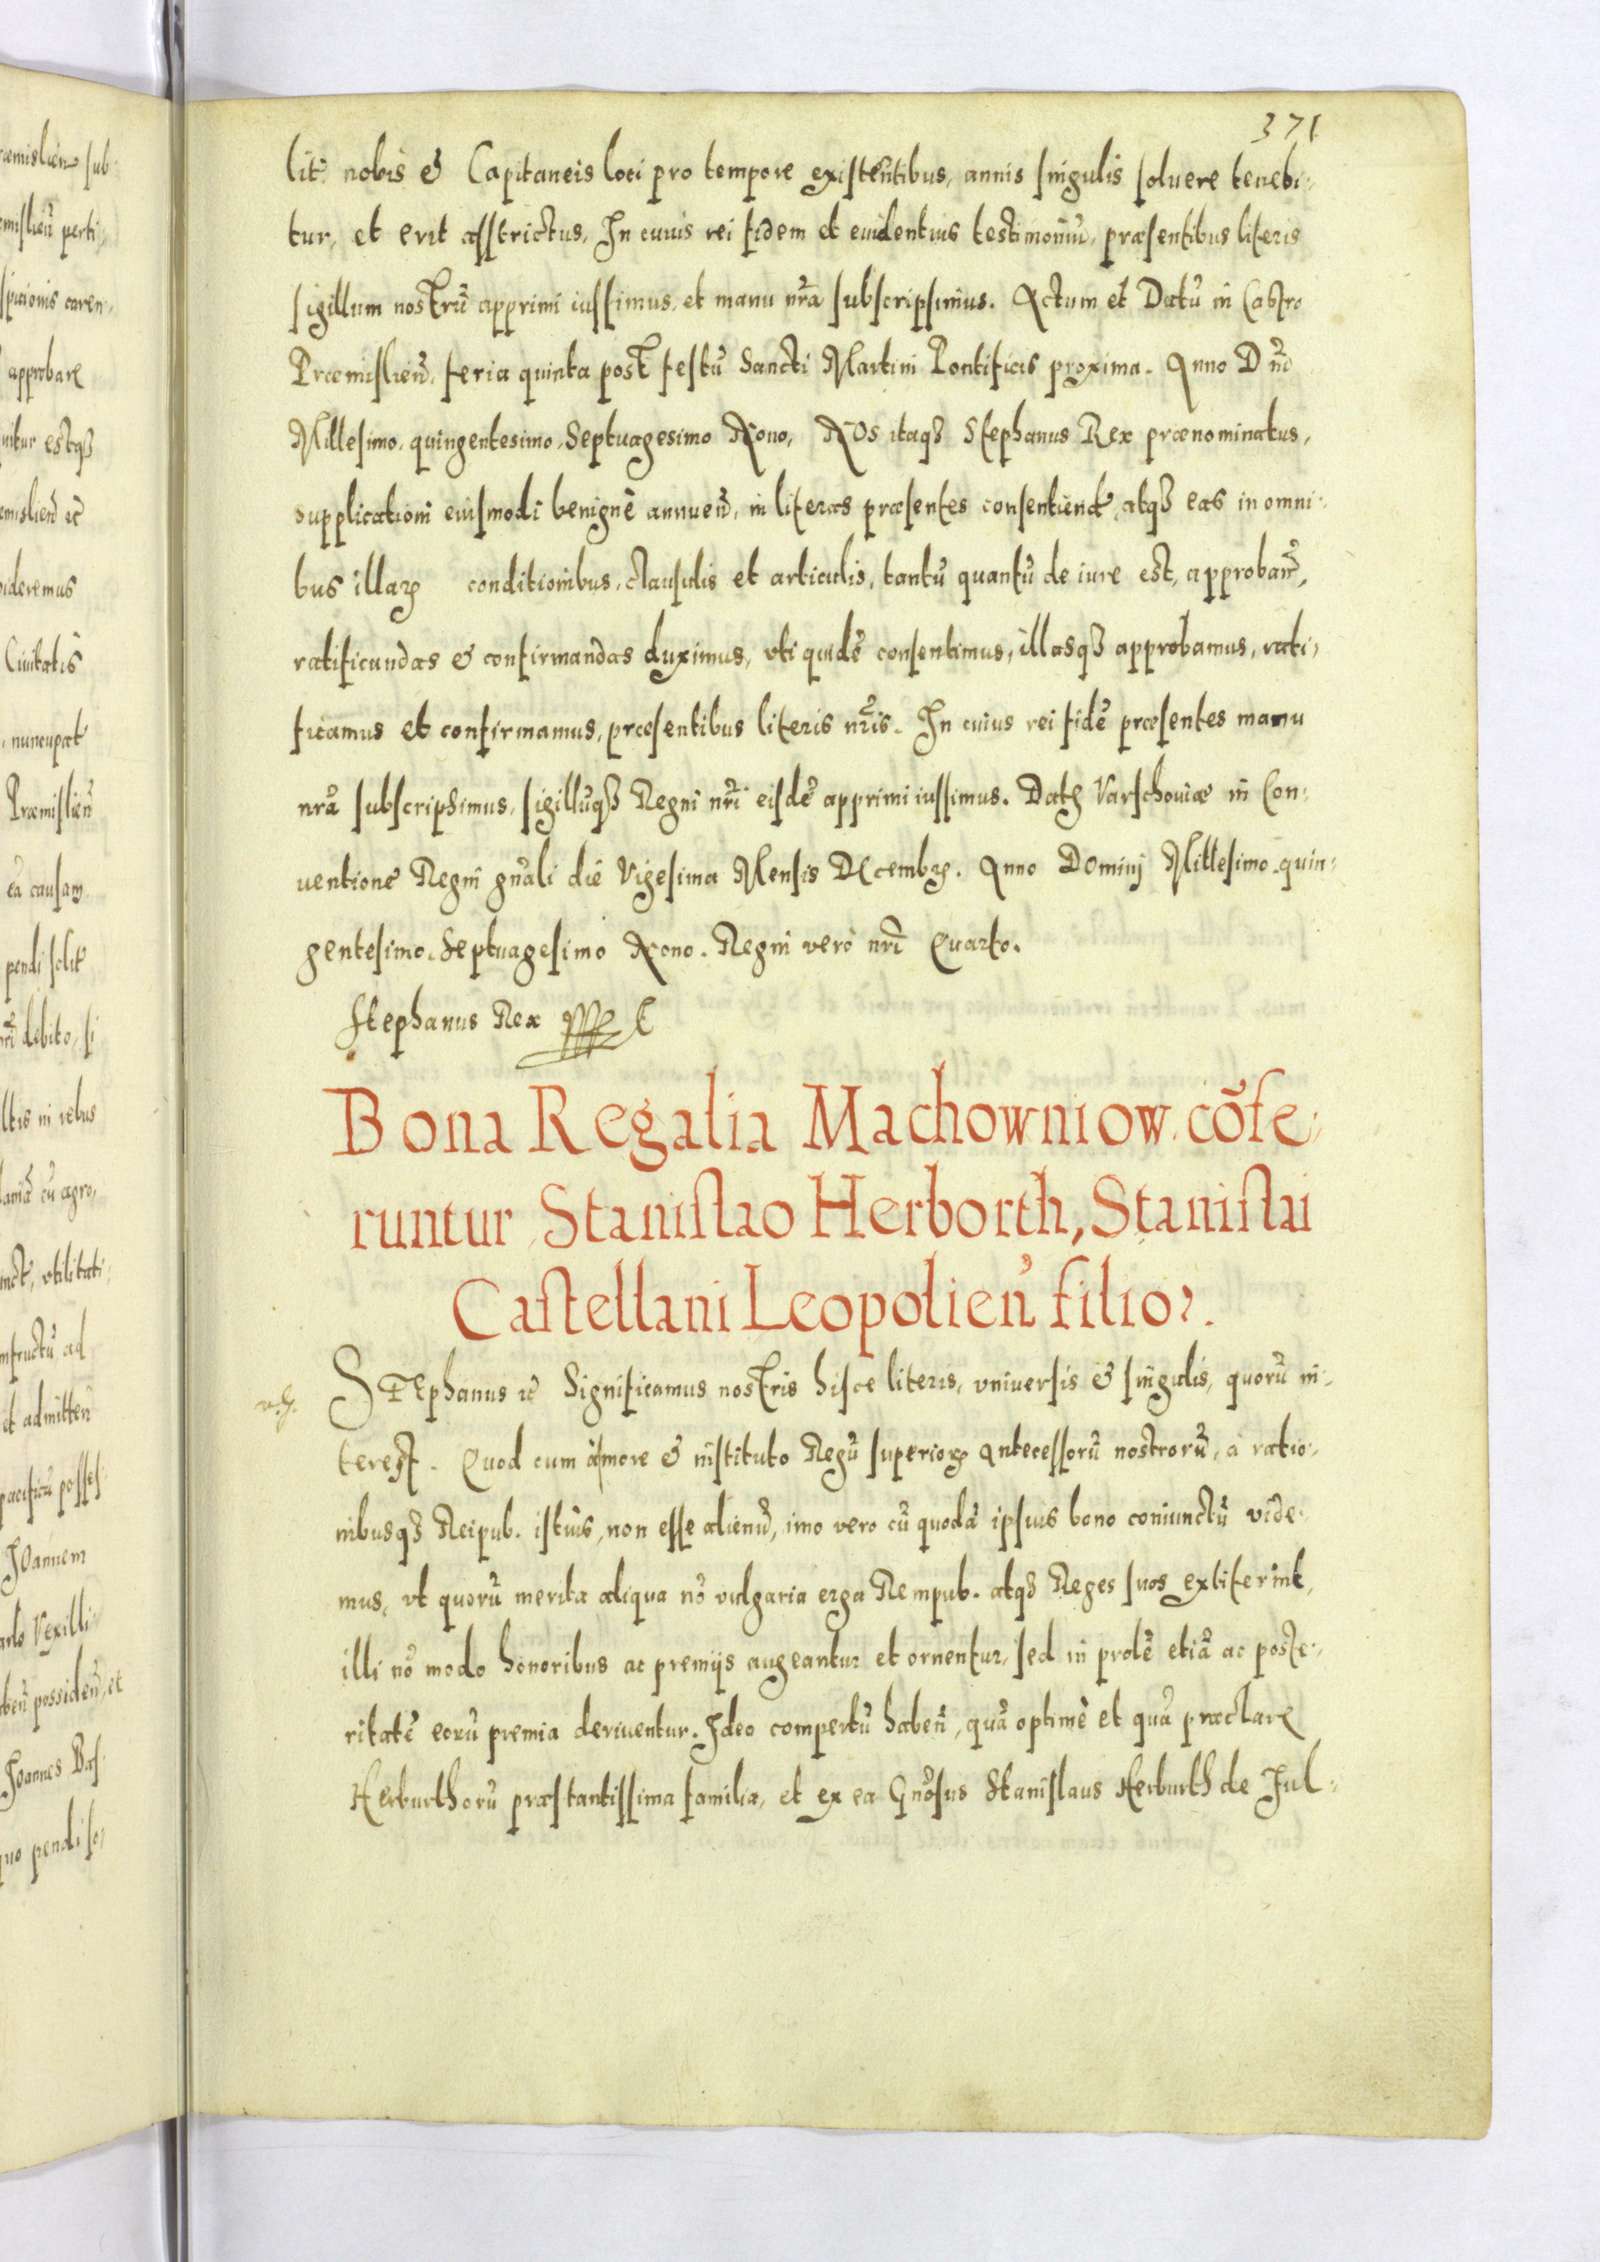 371
lit nobis & Capitaneis loci pro tempore existentibus, annis singulis soluere tenebi,
tur, et erit asstrictus, In cuius rei fidem et euidentius testimoniũ, præsentibus literis
sigillum nostrũ apprimi iussimus, et manu nrã subscripsimus. Actum et Datũ in Castro
Præmislień, feria quinta post festũ Sancti Martini Pontificis proxima. Anno Dni
Millesimo, quingentesimo, Septuagesimo Nono, NOs itaqȝ Stephanus Rex prænominatus,
supplicationi eiusmodi benignè annueñ, in literas præsentes consentiend, atqȝ eas in omni,
bus illarꝝ conditionibus, clausulis et articulis, tantũ quantũ de iure est, approbañ,
ratificundas & confirmandas duximus, vti quidẽ consentimus, illasqȝ approbamus, rati,
ficamus et confirmamus, præsentibus literis nris. In cuius rei fidẽ præsentes manu
nrã subscripsimus, sigillũqȝ Regni nri eisdẽ apprimi iussimus. Datꝝ Varschouiæ in Con,
uentione Regni gñali die Vigesima Mensis Decembrꝝ. Anno Dominj Millesimo quin,
gentesimo. Septuagesimo Nono. Regni verò nri Quarto.
Stephanus Rex
Bona Regalia Machowniow cõfe,
runtur Stanislao Herborth, Stanislai
Castellani Leopolień filio.
STEphanus ꝛc Significamus nostris hisce literis, vniuersis & singulis, quorũ in,
terest. Quod cum à more & instituto Regũ superiorꝝ Antecessorũ nostrorũ, a ratio,
nibusqȝ Reipub. istius, non esse alienũ, imo vero cũ quodã ipsius bono coniunctũ vide,
mus, vt quorũ merita aliqua nõ vulgaria erga Rempub. atqȝ Reges suos extiterint,
illi nõ modo honoribus ac premijs augeantur et ornentur, sed in prolẽ etiã ac poste,
ritatẽ eorũ premia deriuentur. Ideo compertũ habeñ, quã optimè et quã præclare
Herburthorũ præstantissima familia, et ex ea Gnõsus Stanislaus Herburth de Ful,